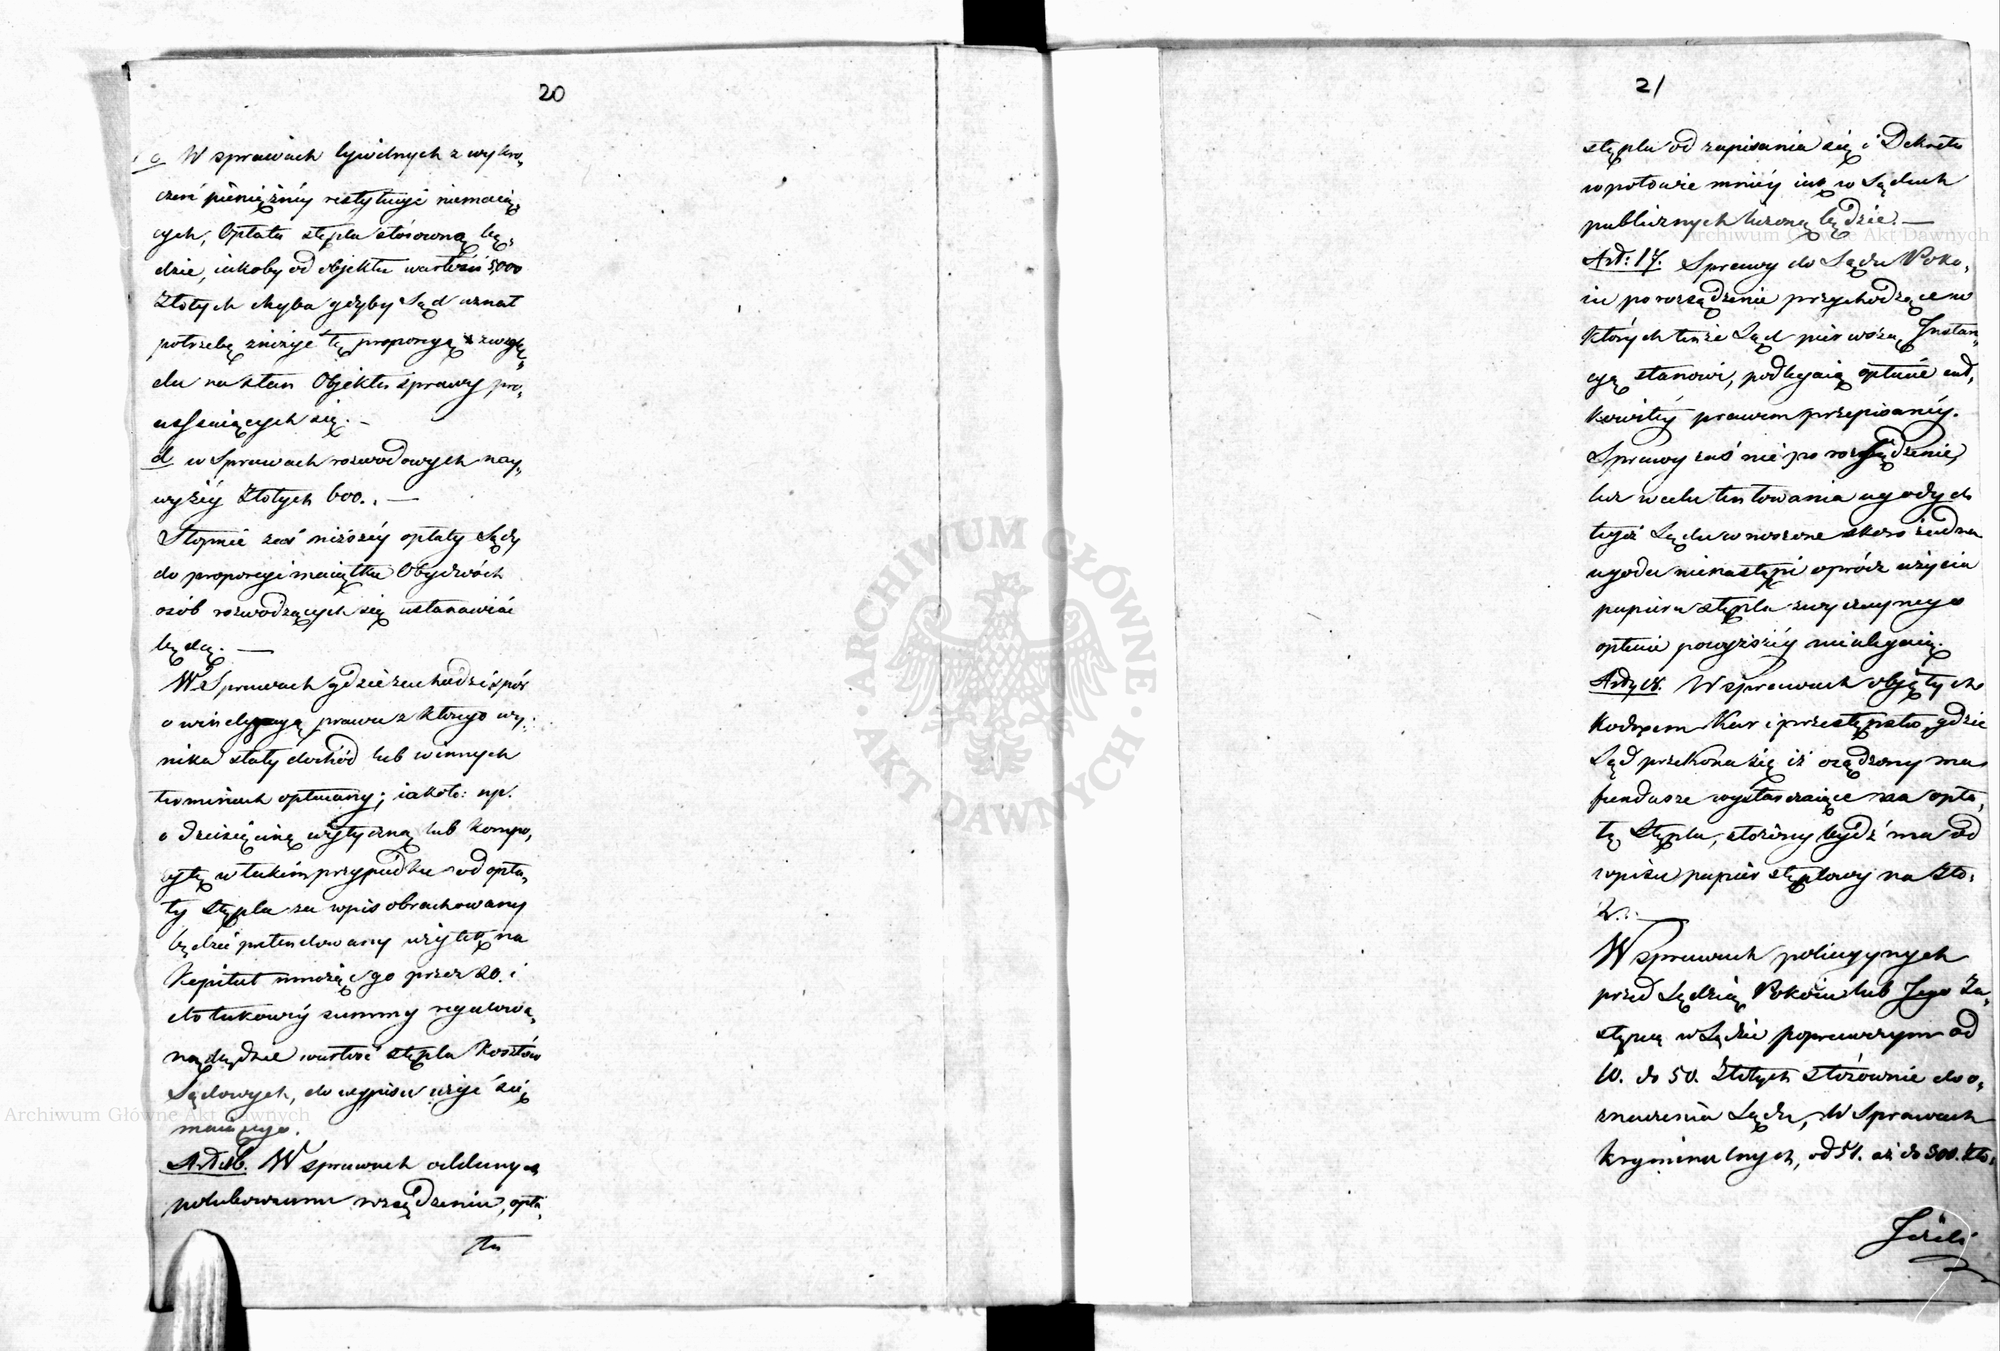 20
c W sprawach cywilnych z wykro-
czeń pieniężnéy restytucyi niemaią-
cych, Opłata stępla stósowną bę-
dzie, iakoby od objektu wartości 5,000
Złotych chyba gdyby Sąd uznał
potrzebę zniżyć tę proporcyą z wzglę-
du na stan Objektu sprawy pro-
cessuiących się. –
d w Sprawach rozwodowych nay-
wyżéy Złotych 600. –
Stopnie zaś niższéy opłaty Sądy
do proporcyi maiątku Obydwóch
osób rozwodzących się ustanawiać
będą. –
W Sprawach gdzie zachodzi spór
o windykacyą prawa z którego wy-
nika stały dochód lub w innych
terminach opłacany; iakoto: np.
o dziesięcinę wytyczną lub kompo-
cytę w takim przypadku od opła-
ty stępla za wpis obrachowany
będzie pretendowany użytek na
Kapitał mnożąc go przez 20. i
do takowéy summy regulowa-
ną będzie wartość stępla kosztów
Sądowych, do wypisu użyć się
maiącego.
Art: 16. W sprawach oddanych
polubownemu rozsądzeniu, opła-
ta
21
stępla od zapisania się i Dekretu
w połowie mniéy iak w Sądach
publicznych liczoną będzie. –
Art: 17. Sprawy do Sądu Poko-
iu po rozsądzenie przychodzące w
których tenże Sąd pierwszą Instan-
cyą stanowi, podlegaią opłacie cał-
kowitéy prawem przepisanéy.
Sprawy zaś nie po rozsądzenie,
lecz w celu tentowania ugody do
tegoż Sądu wnoszone skoro żadna
ugoda nienastąpi oprócz użycia
papieru stępla zwyczaynego
opłacie powyższéy nieulegaią.
Arty 18. W sprawach objętych
Kodexem Kar i przestępstw, gdzie
Sąd przekona się iż osądzony ma
fundusze wystarczaiące na opła-
tę Stępla, złożony bydź ma od
wpisu papier stęplowy na Zło:
2. –
W sprawach policyynych
przed Sędzią Pokoiu lub Jego Za-
stępcą w Sądzie poprawczym od
10. do 50. Złotych stósownie do o-
znaczenia Sądu, W Sprawach
kryminalnych, od 51. aż do 300. Zło:
Jeżeli
Archiwum Główne Akt Dawnych
Archiwum Główne Akt Dawnych
ARCHIWUM GŁÓWNE · AKT DAWNYCH ·